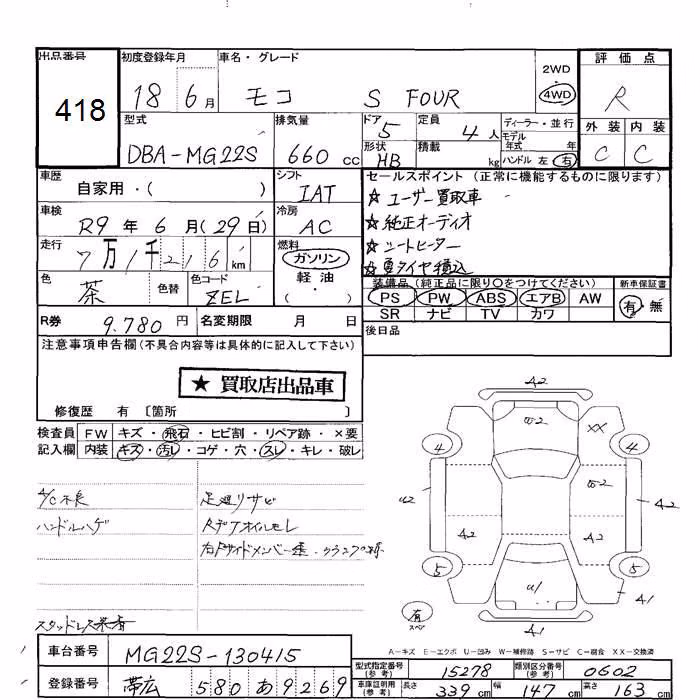 出品番号 初度登録年月 車名・グレード 評価点
418 18 6月 モコ S FOUR 2WD 4WD R
型式 排気量 ドア 5 定員 4人 ディーラー・並行 外装 内装
DBA-MG22S 660cc 形状 HB 積載 kg モデル年式 年 ハンドル 左 右 C C
車歴 自家用・( ) シフト IAT セールスポイント (正常に機能するものに限ります)
★ユーザー買取車
車検 R9年6月(29日) 冷房 AC ★純正オーディオ
走行 7万1千216km 燃料 ガソリン 軽油 ・ ★シートヒーター
★夏タイヤ積込
色 茶 色替 色コード ZEL 装備品 (純正品に限り○をつけてください) 新車保証書
PS PW ABS エアB AW 有 無
SR ナビ TV カワ
R券 9.780円 名変期限 月 日 後日品
注意事項申告欄(不具合内容等は具体的に記入して下さい)
★買取店出品車
修復歴 有 〔箇所 〕
検査員 FW キズ・飛石・ヒビ割・リペア跡・×要
記入欄 内装 キズ・汚レ・コゲ・穴・スレ・キレ・破レ
A/C不良 足廻リサビ
ハンドルハゲ Rデフオイルモレ
スタッドレス
A2
W2 XX
4 4
W2
A2 A2 A2
5 5
U1
A1
有 スペア A1
A-キズ E-エクボ U-凹み W-補修跡 S-サビ C-腐食 XX-交換済
車台番号 MG22S-130415
型式指定番号(参考) 15278 類別区分番号(参考) 0602
登録番号 帯広 580 あ 9269
車庫証明用(参考) 長さ 339cm 幅 147cm 高さ 163cm